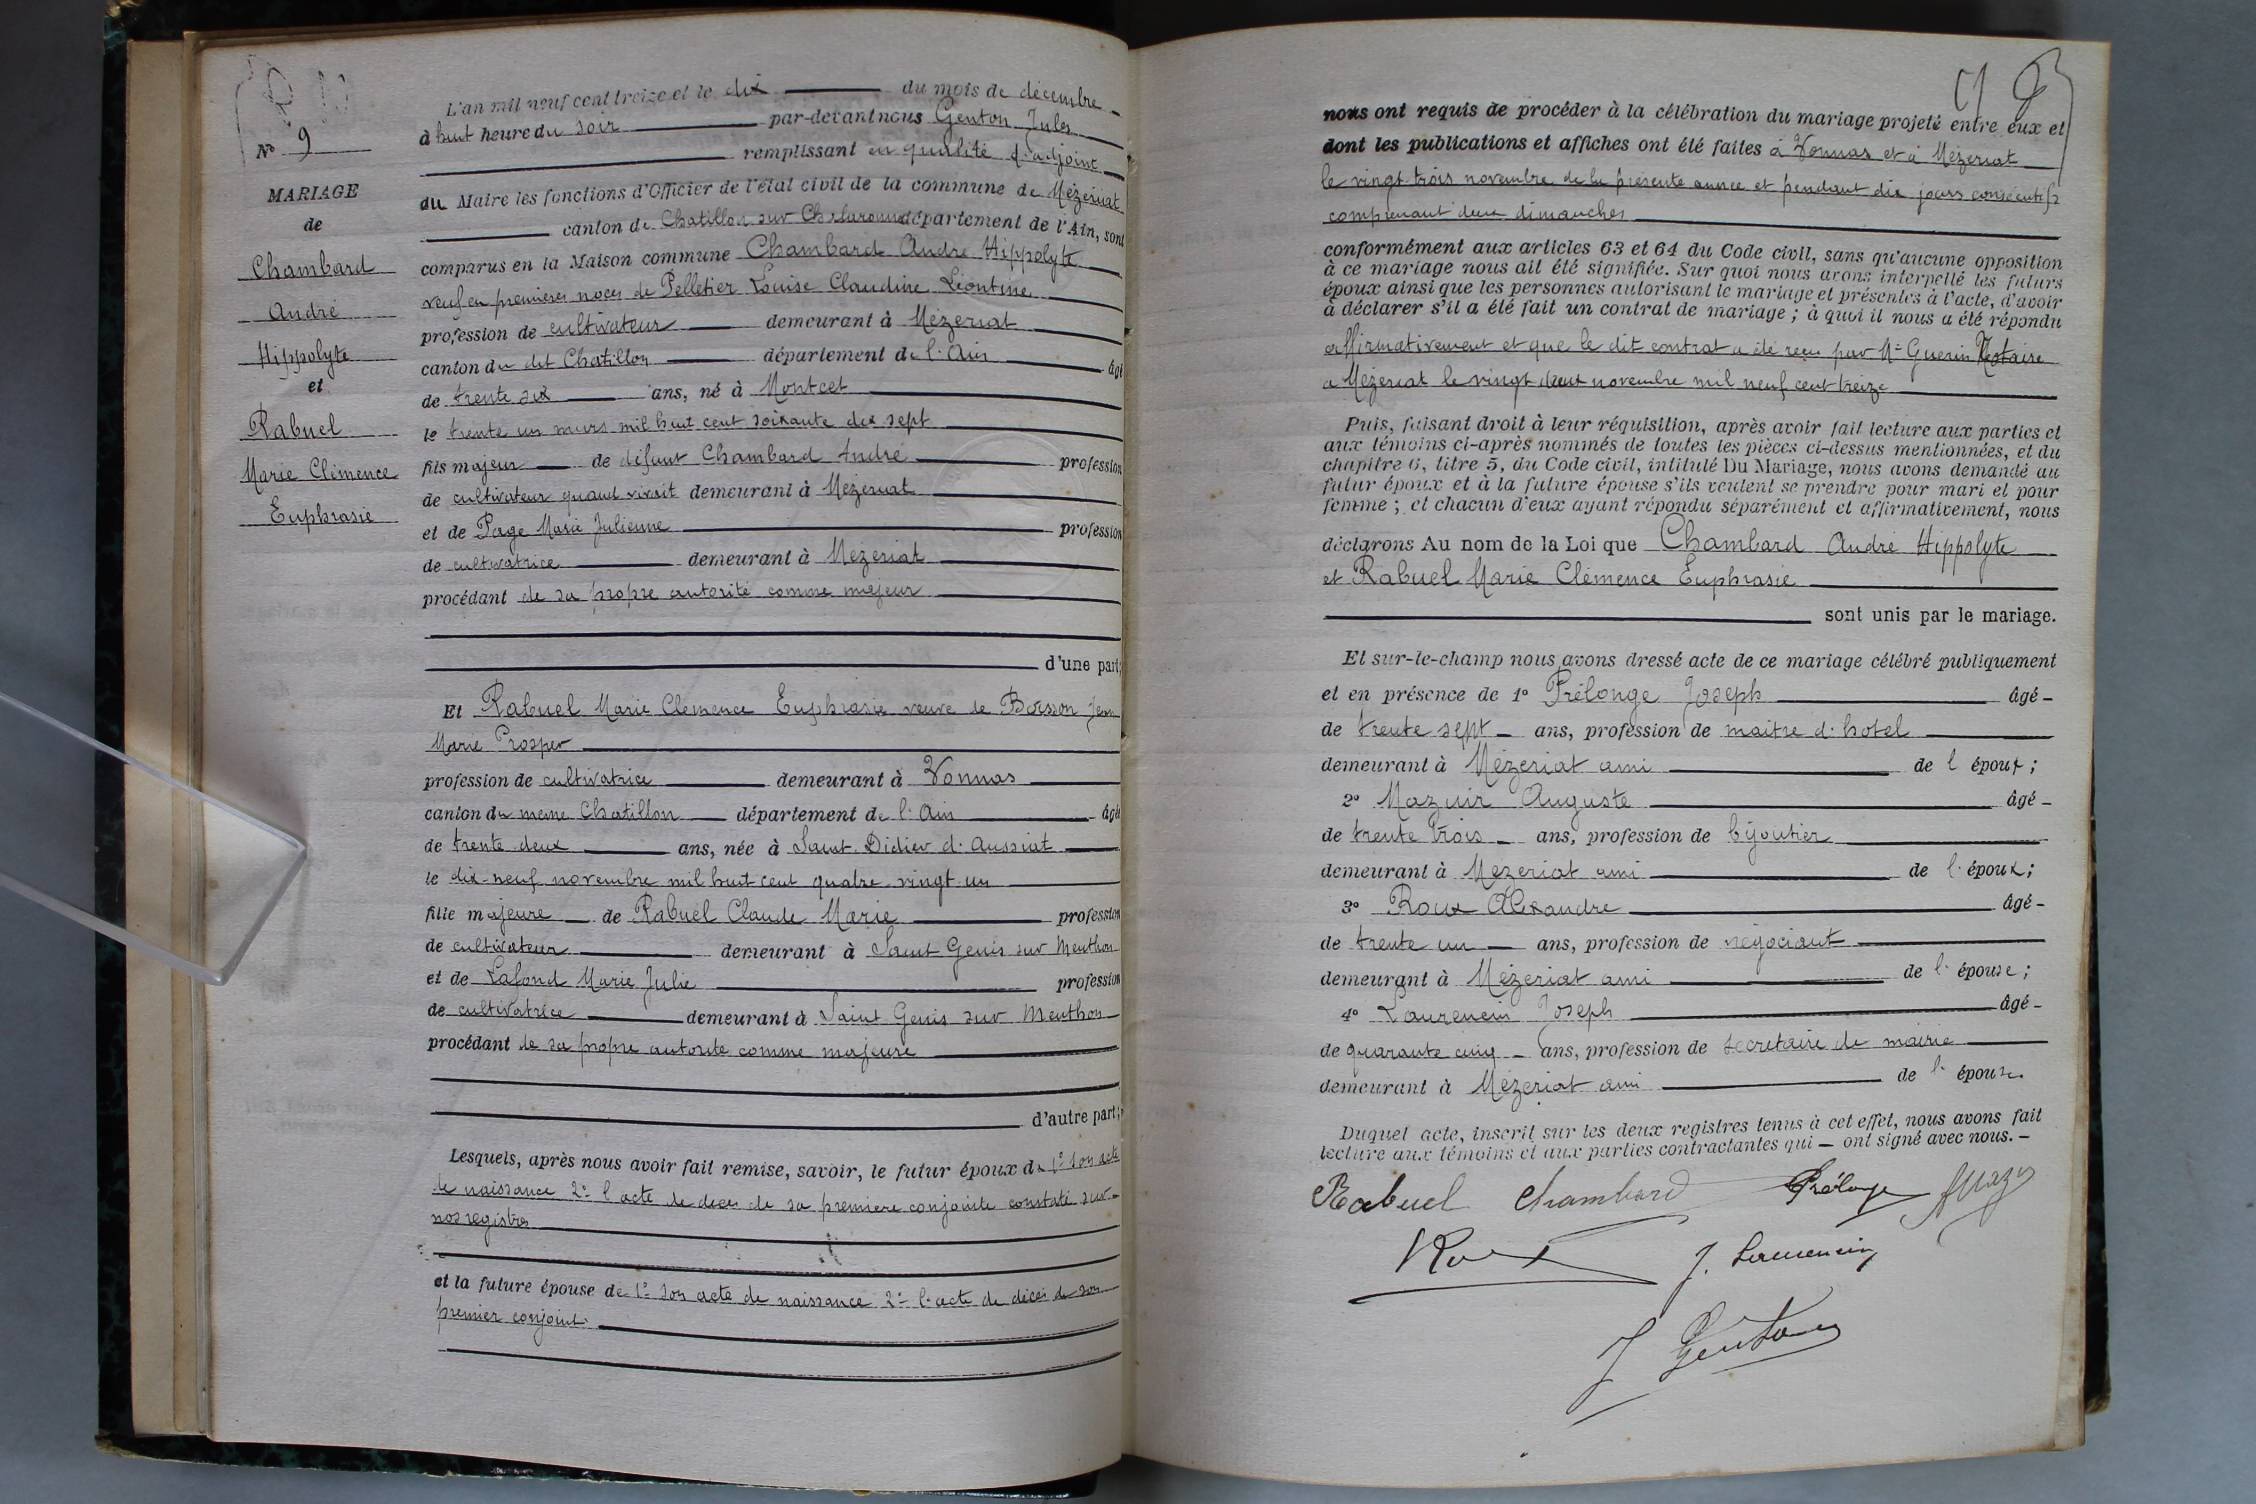 N° 9
MARIAGE
de
Chambard
André
Hippolyte
et
Rabuel
Marie Clémence
Euphrasie
L'an mil neuf cent treize et le dix du mois de décembre
à huit heure du soir par-devant nous Genton Jules
remplissant en qualité d'adjoint
du Maire les fonctions d'Officier de l'état civil de la commune de Mézériat
canton de Chatillon sur Chalaronne département de l'Ain, sont
comparus en la Maison commune Chambard André Hippolyte
veuf en premières noces de Pelletier Louise Claudine Léontine
profession de cultivateur demeurant à Mézériat
canton du dit Chatillon département de l'Ain âgé
de trente six ans, né à Montcet
le trente un mars mil huit cent soixante dix sept
fils majeur de défunt Chambard André profession
de cultivateur quand vivait demeurant à Mézériat
et de Page Marie Julienne profession
de cultivatrice demeurant à Mézériat
procédant de sa propre autorité comme majeur
d'une part;
Et Rabuel Marie Clémence Euphrasie veuve de Boisson Jean
Marie Prosper
profession de cultivatrice demeurant à Vonnas
canton du meme Chatillon département de l'Ain âgée
de trente deux ans, née à Saint Didier d'Aussiat
le dix-neuf novembre mil huit cent quatre-vingt-un
fille majeure de Rabuel Claude Marie profession
de cultivateur demeurant à Saint Genis sur Menthon
et de Lafond Marie Julie profession
de cultivatrice demeurant à Saint Genis sur Menthon
procédant de sa propre autorité comme majeure
d'autre part;
Lesquels, après nous avoir fait remise, savoir, le futur époux de 1° son acte
de naissance 2° l'acte de décès de sa première conjointe constaté sur
nos registres
et la future épouse de 1° son acte de naissance 2° l'acte de décès de son
premier conjoint
nous ont requis de procéder à la célébration du mariage projeté entre eux et
dont les publications et affiches ont été faites à Vonnas et à Mézériat
le vingt-trois novembre de la présente année et pendant dix jours consécutifs
comprenant deux dimanches
conformément aux articles 63 et 64 du Code civil, sans qu'aucune opposition
à ce mariage nous ait été signifiée. Sur quoi nous avons interpellé les futurs
époux ainsi que les personnes autorisant le mariage et présentes à l'acte, d'avoir
à déclarer s'il a été fait un contrat de mariage; à quoi il nous a été répondu
affirmativement et que le dit contrat a été reçu par Me Guerin Notaire
a Mézériat le vingt deux novembre mil neuf cent treize
Puis, faisant droit à leur réquisition, après avoir fait lecture aux parties et
aux témoins ci-après nommés de toutes les pièces ci-dessus mentionnées, et du
chapitre 6, titre 5, du Code civil, intitulé Du Mariage, nous avons demandé au
futur époux et à la future épouse s'ils veulent se prendre pour mari et pour
femme; et chacun d'eux ayant répondu séparément et affirmativement, nous
déclarons Au nom de la Loi que Chambard André Hippolyte
et Rabuel Marie Clémence Euphrasie
sont unis par le mariage.
Et sur-le-champ nous avons dressé acte de ce mariage célébré publiquement
et en présence de 1° Prélonge Joseph âgé
de trente sept ans, profession de maitre d'hotel
demeurant à Mézériat ami de l'époux;
2° Mazuir Auguste âgé
de trente trois ans, profession de bijoutier
demeurant à Mézériat ami de l'époux;
3° Roux Alexandre âgé
de trente un ans, profession de négociant
demeurant à Mézériat ami de l'épouse;
4° Laurencin Joseph âgé
de quarante cinq ans, profession de secrétaire de mairie
demeurant à Mézériat ami de l'épouse.
Duquel acte, inscrit sur les deux registres tenus à cet effet, nous avons fait
lecture aux témoins et aux parties contractantes qui ont signé avec nous.
Rabuel Chambard Prélonge
Roux J. Laurencin
J Genton